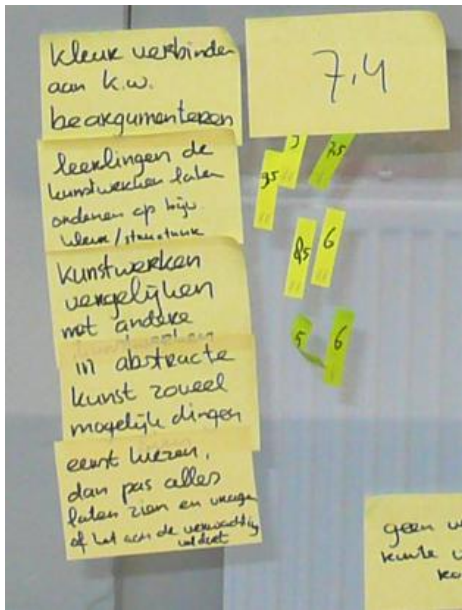 kleur verbinden
aan k.w.
beargumenteren
7,4
leerlingen de
kunstwerken laten
ordenen op bijv.
kleur/structuur
7,5
9,5
8,5
6
kunstwerken
vergelijken
met andere
5
6
in abstracte
kunst zoveel
mogelijk dingen
eerst kiezen,
dan pas alles
laten zien en vragen
of het aan de verwachting
voldoet
geen